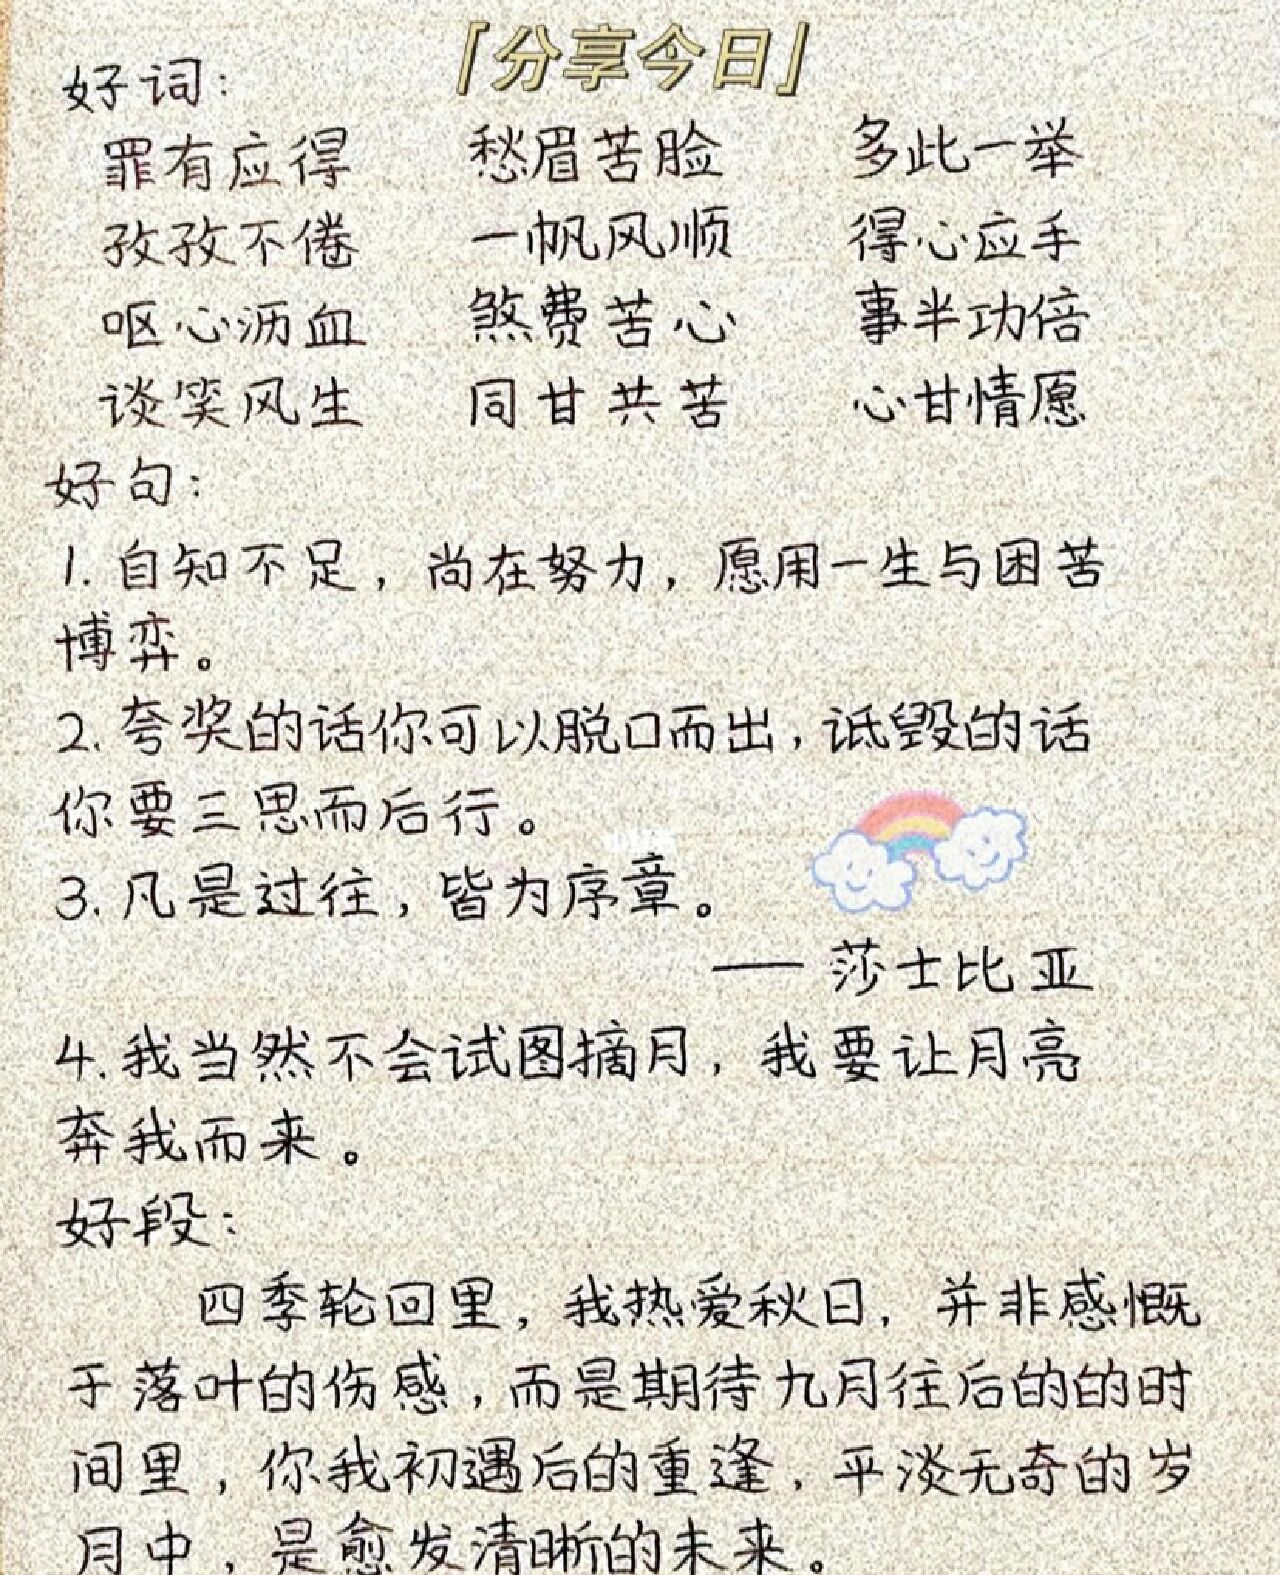 「分享今日」
好词:
罪有应得 愁眉苦脸 多此一举
孜孜不倦 一帆风顺 得心应手
呕心沥血 煞费苦心 事半功倍
谈笑风生 同甘共苦 心甘情愿
好句:
1.自知不足,尚在努力,愿用一生与困苦
博弈。
2.夸奖的话你可以脱口而出,诋毁的话
你要三思而后行。
3.凡是过往,皆为序章。
——莎士比亚
4.我当然不会试图摘月,我要让月亮
奔我而来。
好段:
四季轮回里,我热爱秋日,并非感慨
于落叶的伤感,而是期待九月往后的的时
间里,你我初遇后的重逢,平淡无奇的岁
月中,是愈发清晰的未来。